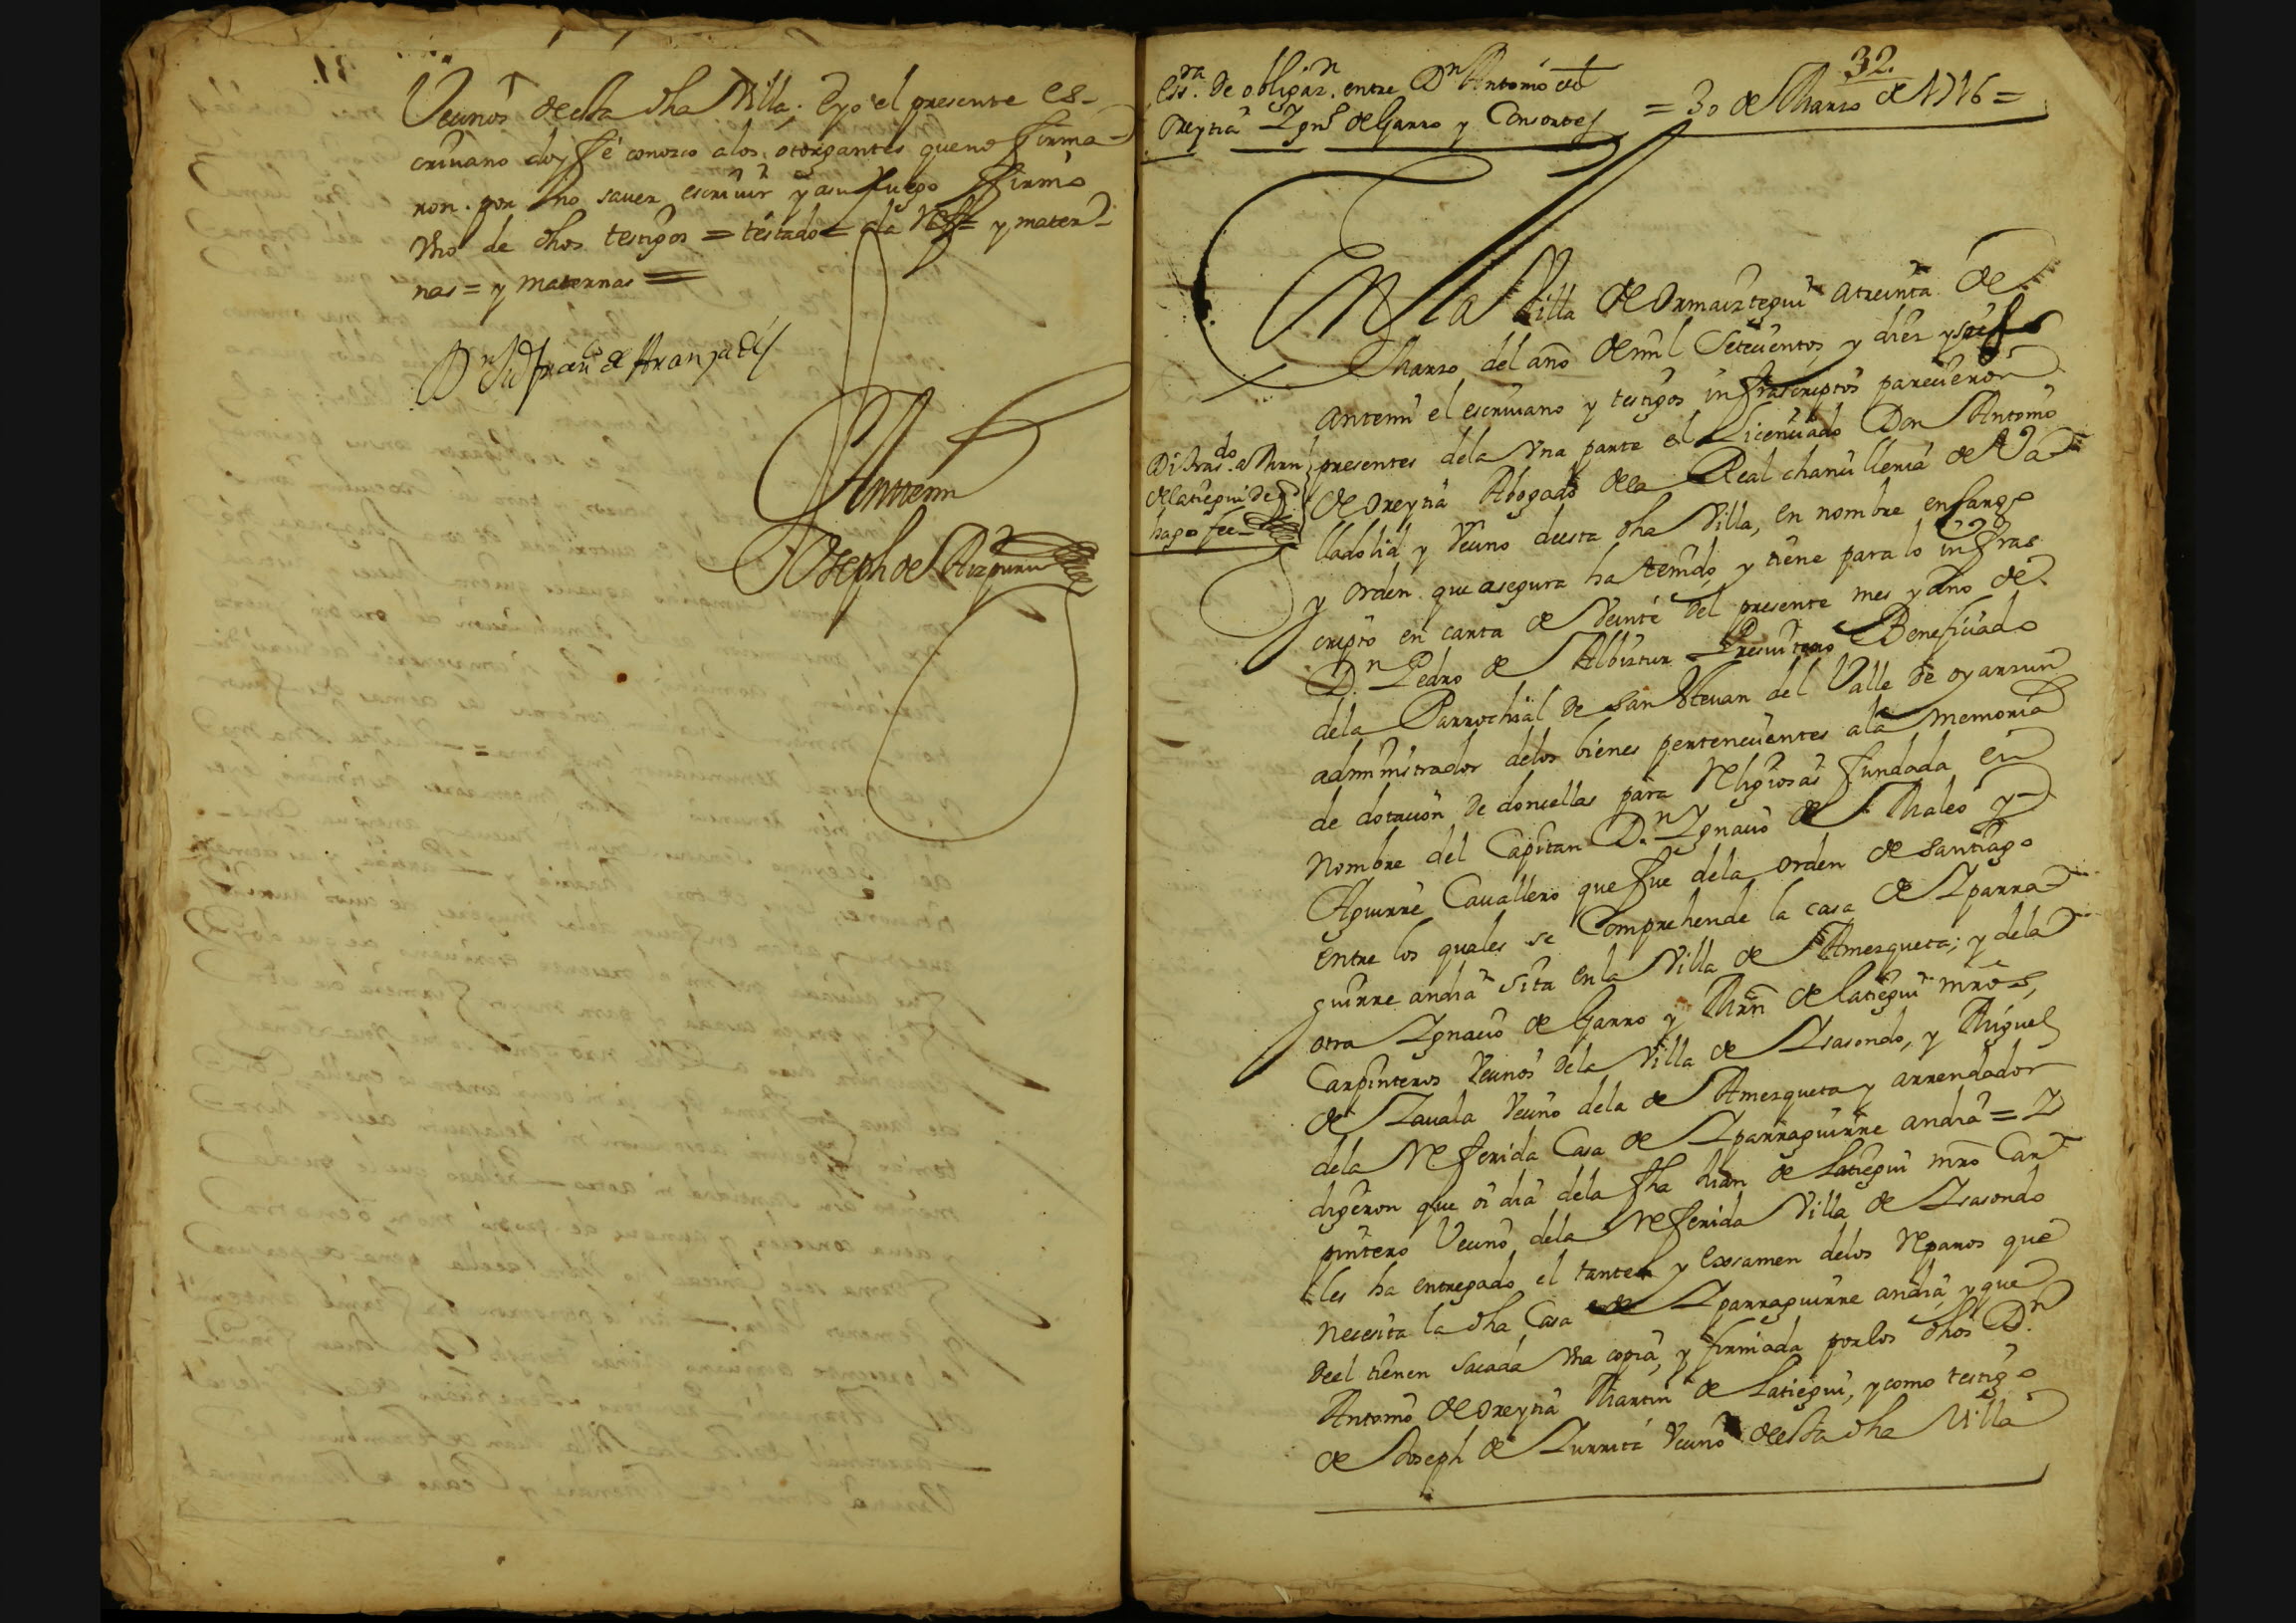 Vecinos de esta dha Villa; E yo el presente es-
criuano doy fé conozco a los otorgantes que no firma-
ron por no sauer escriuir y a su Ruego firmó
vno de dhos testigos = testado = a la Reff = y mater-
nas = y maternas =
Antemi
Joseph de Aizpuru
32.
Essra. de obligaz.n entre D.n Antonio de
Oreytia Ign.o de Garro y Consortes
= 30 de Marzo de 1716 =
En la Villa de Ormaiztegui a treinta de
Marzo del año de mil Setecientos y diez y seis
antemi el escriuano y testigos infrascriptos parecieron
presentes de la vna parte el Licenciado Don Antonio
de Oreytia Abogado de la Real chancilleria de Va-
lladolid y Vecino de esta dha Villa, en nombre encargo
y orden que asegura ha tenido y tiene para lo infras
cripto en carta de veinte del presente mes y año de
D.n Pedro de Albiztur Presuitero Beneficiado
de la Parrochial de San Esteuan del Valle de oyarzun
administrador de los bienes pertenecientes a la memoria
de dotacion de doncellas para Religiosas fundada en
nombre del Capitan D.n Ignacio de Maleo y
Aguirre Cauallero que fue de la orden de Santiago
entre los quales se Comprehende la casa de Yparra-
guirre andia sita en la Villa de Amezqueta; y de la
otra Ignacio de Garro y Mrn de Latiegui mros,
Carpinteros Vecinos de la Villa de Ysasondo, y Miguel
de Zauala Vecino de la de Amezqueta y arrendador
de la Referida Casa de Yparraguirre andia = Y
digeron que oi dia de la fha Juan de Latiegui mro Car-
pintero Vecino de la Referida Villa de Ysasondo
les ha entregado el tanteo y Exsamen de los Reparos que
necesita la dha Casa de Yparraguirre andia y que
de el tienen sacada vna copia, y firmada por los dhos D.n
Antonio de Oreytia Martin de Latiegui, y como testigo
de Joseph de Zurrita Vecino de esta dha Villa
Di tras.do a Mrn
de Latiegui de q.e
hago fee